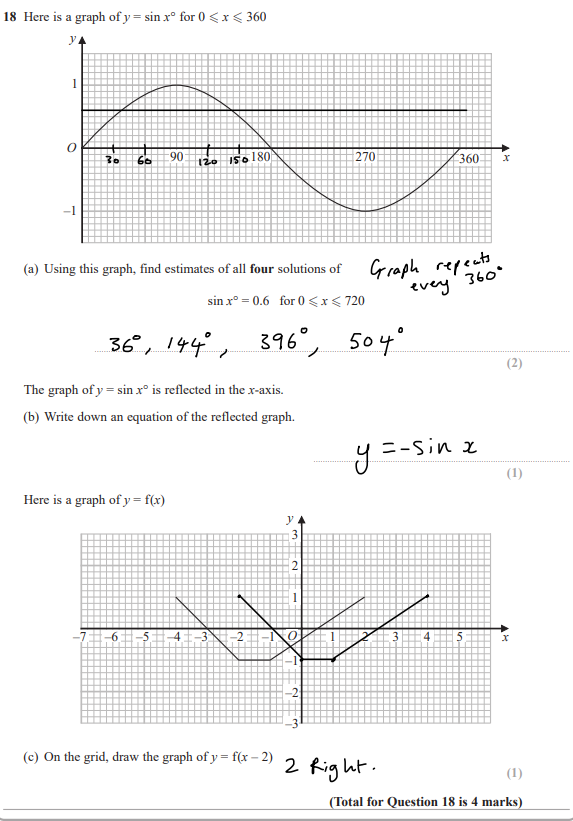 18 Here is a graph of y = sin x° for 0 ⩽ x ⩽ 360
y
1
O 30 60 90 120 150 180 270 360 x
−1
(a) Using this graph, find estimates of all four solutions of
Graph repeats
every 360°
sin x° = 0.6 for 0 ⩽ x ⩽ 720
36°, 144°, 396°, 504°
(2)
The graph of y = sin x° is reflected in the x-axis.
(b) Write down an equation of the reflected graph.
y = -sin x
(1)
Here is a graph of y = f(x)
y
3
2
1
−7 −6 −5 −4 −3 −2 −1 O 1 2 3 4 5 x
−1
−2
−3
(c) On the grid, draw the graph of y = f(x – 2) 2 Right.
(1)
(Total for Question 18 is 4 marks)